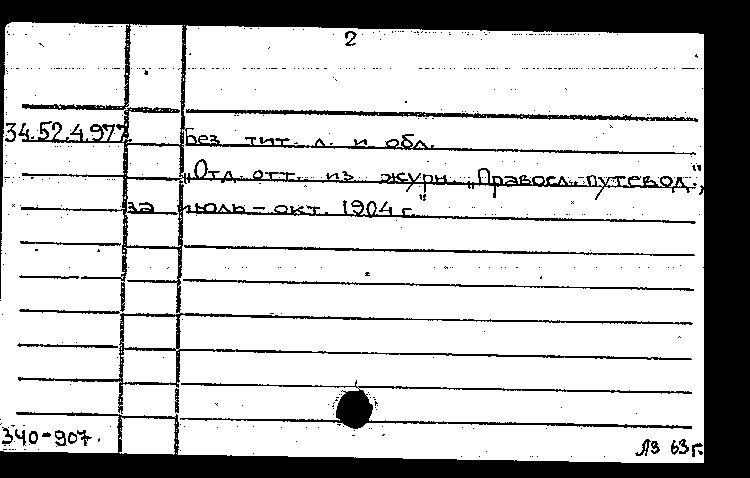 2
34.52.4.977 Без тит. л. и обл.
„Отд. отт. из журн. „Правосл. путевод.",
за июль - окт. 1904 г."
340-907.
ЛЗ 63 г.